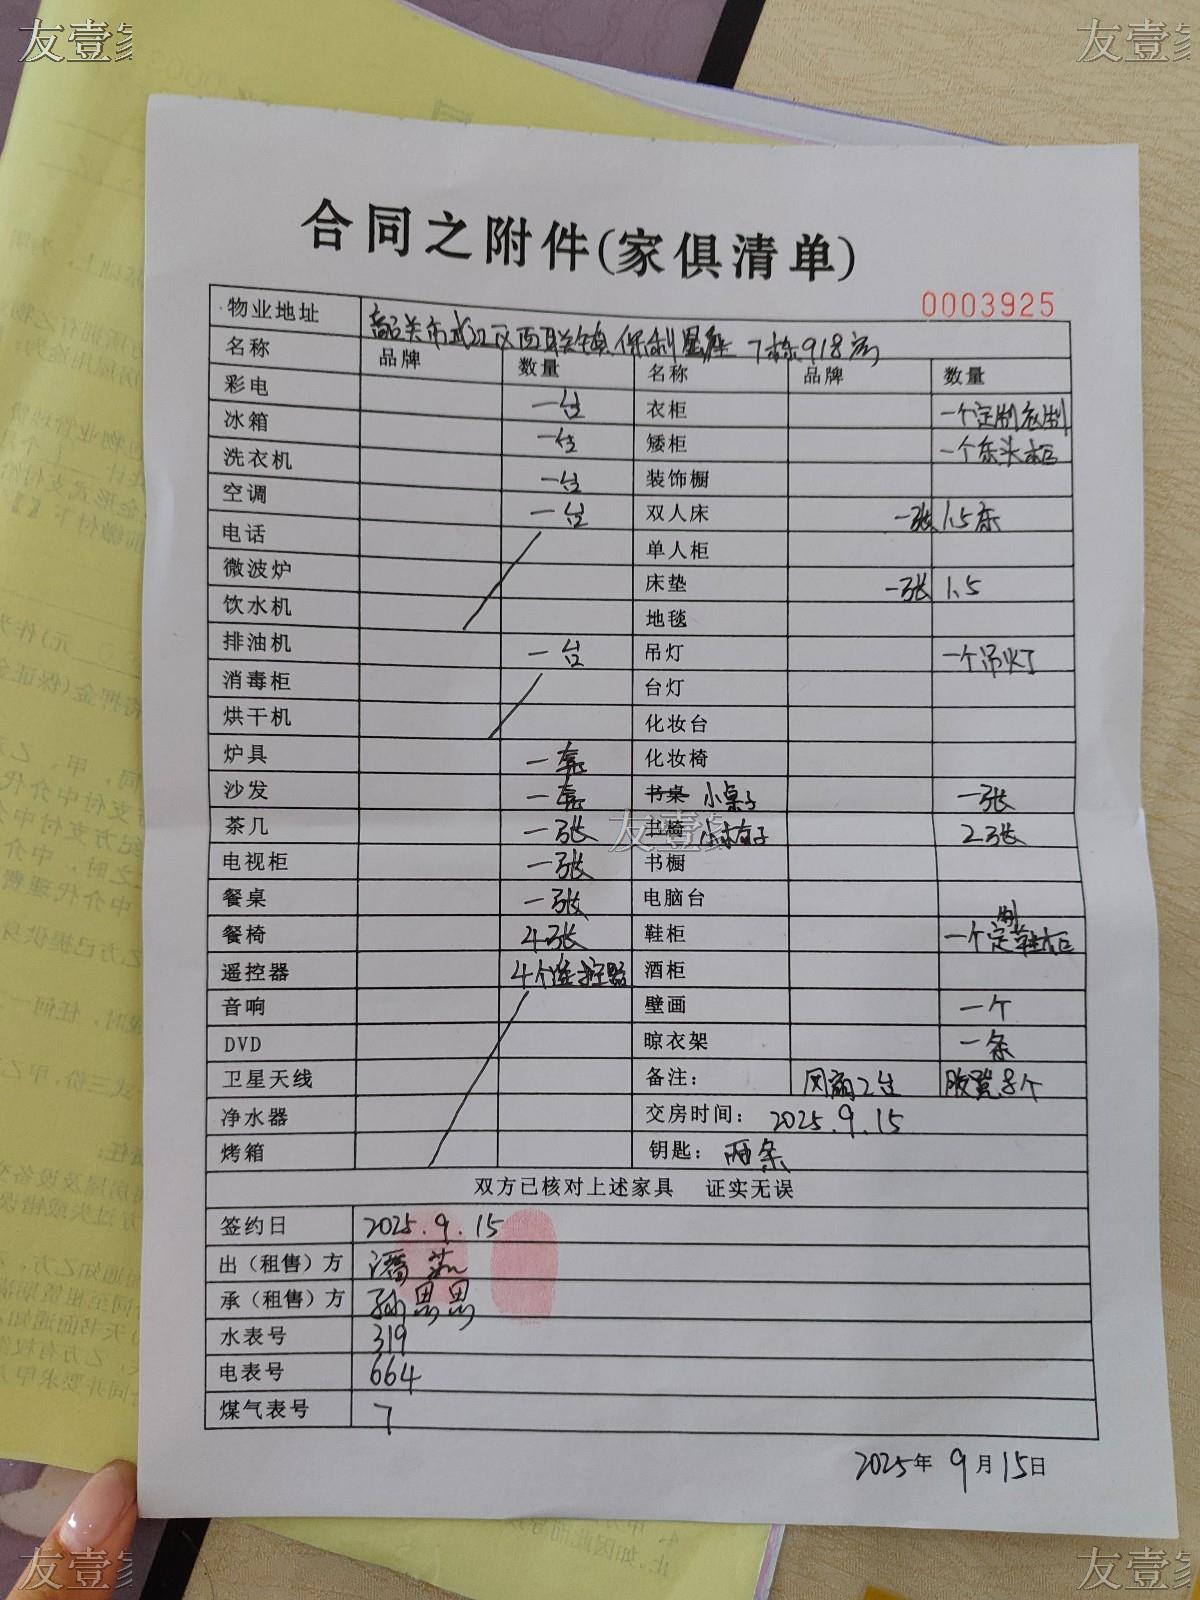 友壹家
友壹家
合同之附件(家俱清单)
0003925
物业地址 韶关市武江区西联镇保利星座7栋918房
名称 品牌 数量 名称 品牌 数量
彩电 一台 衣柜 一个定制衣制
冰箱 一台 矮柜 一个床头柜
洗衣机 一台 装饰橱
空调 一台 双人床 一张 1.5床
电话 单人柜
微波炉 床垫 一张 1.5
饮水机 地毯
排油机 一台 吊灯 一个吊灯
消毒柜 台灯
烘干机 化妆台
炉具 一套 化妆椅
沙发 一套 书桌 小桌子 一张
茶几 一张 书椅 小椅子 2张
友壹家
电视柜 一张 书橱
餐桌 一张 电脑台
餐椅 4张 鞋柜 一个定制鞋柜
遥控器 4个遥控器 酒柜
音响 壁画 一个
DVD 晾衣架 一条
卫星天线 备注: 风扇2台 胶凳8个
净水器 交房时间: 2025.9.15
烤箱 钥匙: 两条
双方已核对上述家具 证实无误
签约日 2025.9.15
出（租售）方 潘
承（租售）方 孙思思
水表号 319
电表号 664
煤气表号 7
2025年9月15日
友壹家
友壹家